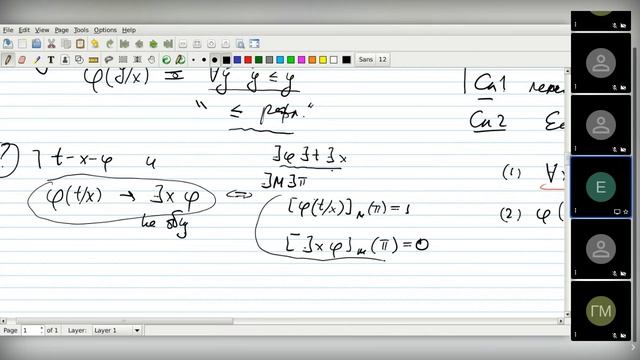 File Edit View Page Tools Options Help
Sans 12
φ(y/x) ≡ ∀y y ≤ y
" ≤ рефл."
Сл1
Сл2
?) ⌉ t-x-φ и
φ(t/x) → ∃x φ ⟺
не общ
∃φ∃t∃x
∃M∃π
[φ(t/x)]ₘ(π)=1
[∃xφ]ₘ(π)=0
(1) ∀x
(2) φ(
E
ГМ
Page 1 of 1 Layer: Layer 1